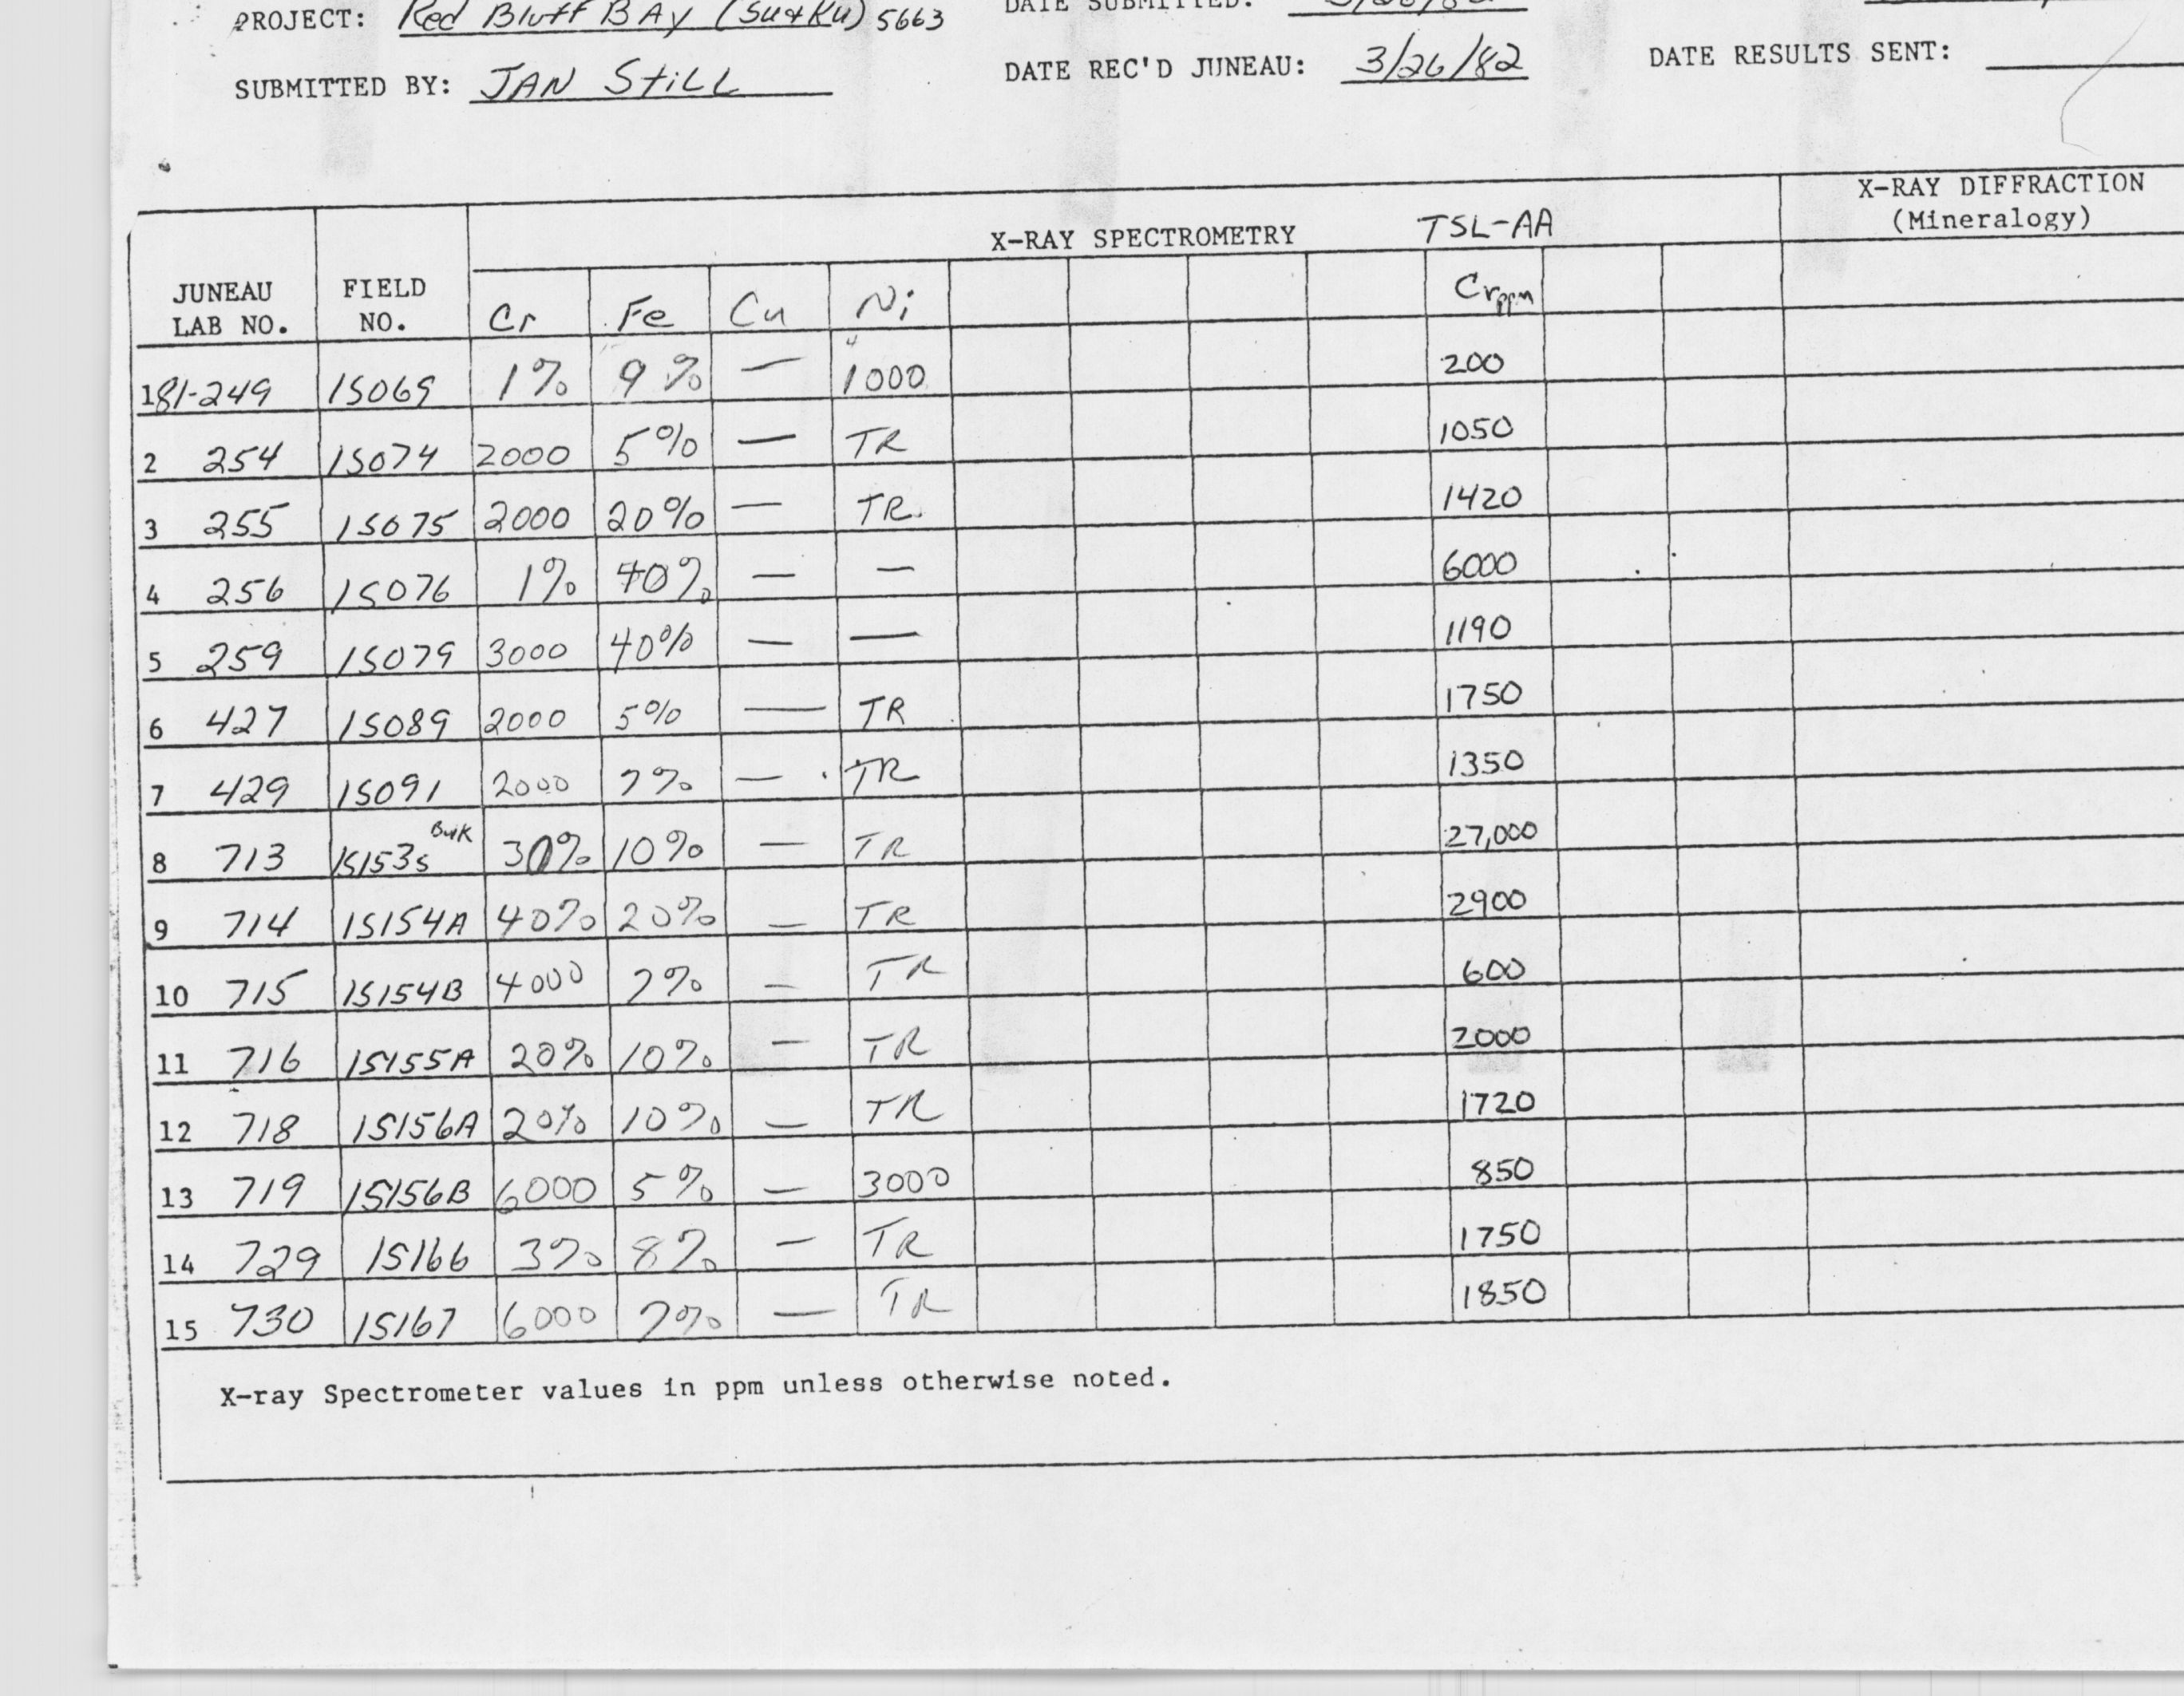 PROJECT: Red Bluff BAy (Su&Ku) 5663 DATE SUBMITTED:
SUBMITTED BY: JAN StiLL DATE REC'D JUNEAU: 3/26/82 DATE RESULTS SENT:
X-RAY SPECTROMETRY TSL-AA X-RAY DIFFRACTION
(Mineralogy)
JUNEAU LAB NO. FIELD NO. Cr Fe Cu Ni Cr ppm
1 81-249 1S069 1% 9% — 1000 200
2 254 1S074 2000 5% — TR 1050
3 255 1S075 2000 20% — TR. 1420
4 256 1S076 1% 40% — — 6000
5 259 1S079 3000 40% — — 1190
6 427 1S089 2000 5% — TR 1750
7 429 1S091 2000 7% — TR 1350
8 713 1S153s Bulk 30% 10% — TR 27,000
9 714 1S154A 40% 20% — TR 2900
10 715 1S154B 4000 7% — TR 600
11 716 1S155A 20% 10% — TR 2000
12 718 1S156A 20% 10% — TR 1720
13 719 1S156B 6000 5% — 3000 850
14 729 1S166 3% 8% — TR 1750
15 730 1S167 6000 7% — TR 1850
X-ray Spectrometer values in ppm unless otherwise noted.